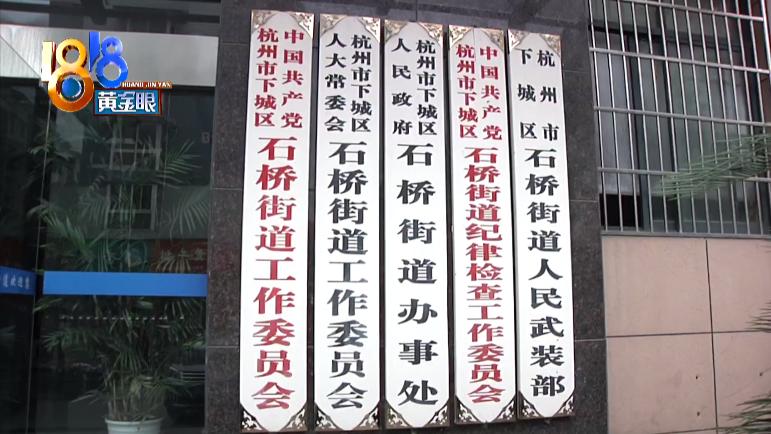 1818
HUANG JIN YAN
黄金眼
中国共产党
杭州市下城区
石桥街道工作委员会
杭州市下城区
人大常委会
石桥街道工作委员会
杭州市下城区
人民政府
石桥街道办事处
中国共产党
杭州市下城区
石桥街道纪律检查工作委员会
杭州市
下城区
石桥街道人民武装部